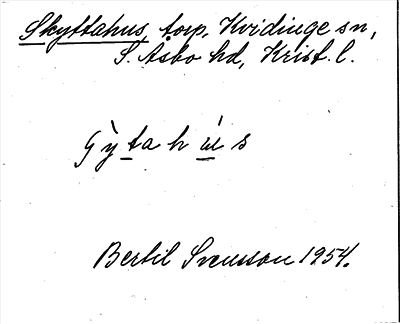 Skyttahus, torp, Kvidinge sn,
S. Åsbo hd, Krist. l.
Gỳtahús
Bertil Svensson 1954.